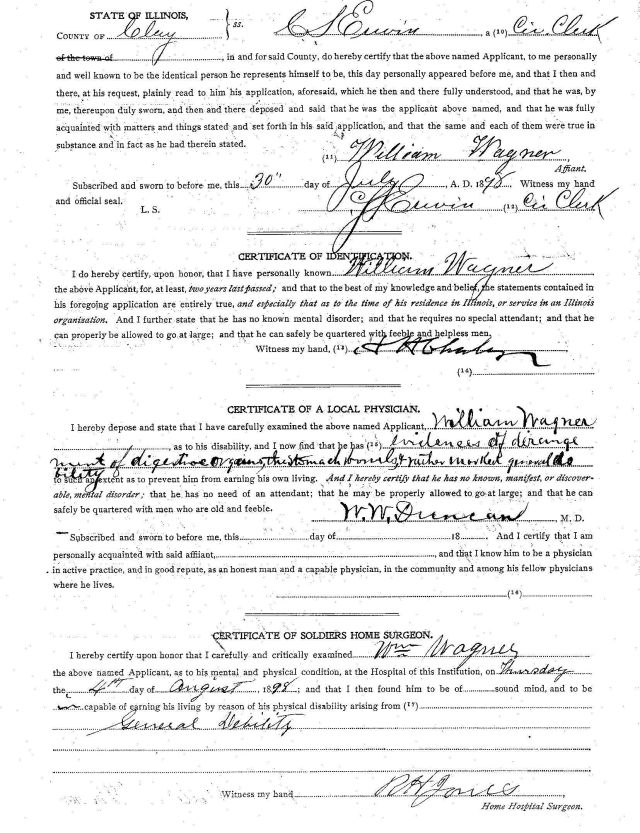 STATE OF ILLINOIS,
COUNTY OF Clay } ss. C S Erwin a (10) Cir. Clerk
of the town of , in and for said County, do hereby certify that the above named Applicant, to me personally
and well known to be the identical person he represents himself to be, this day personally appeared before me, and that I then and
there, at his request, plainly read to him his application, aforesaid, which he then and there fully understood, and that he was, by
me, thereupon duly sworn, and then and there deposed and said that he was the applicant above named, and that he was fully
acquainted with matters and things stated and set forth in his said application, and that the same and each of them were true in
substance and in fact as he had therein stated.
(11) William Wagner,
Affiant.
Subscribed and sworn to before me, this 30" day of July, A. D. 1898. Witness my hand
and official seal. L. S. C S Erwin (12) Cir Clerk
CERTIFICATE OF IDENTIFICATION.
I do hereby certify, upon honor, that I have personally known William Wagner
the above Applicant, for, at least, two years last passed; and that to the best of my knowledge and belief, the statements contained in
his foregoing application are entirely true, and especially that as to the time of his residence in Illinois, or service in an Illinois
organisation. And I further state that he has no known mental disorder; and that he requires no special attendant; and that he
can properly be allowed to go at large; and that he can safely be quartered with feeble and helpless men.
Witness my hand, (13)
(14)
CERTIFICATE OF A LOCAL PHYSICIAN.
I hereby depose and state that I have carefully examined the above named Applicant, William Wagner
, as to his disability, and I now find that he has (15) evidences of derange
ment of digestive organs, the stomach & rather marked general de
bility
to such an extent as to prevent him from earning his own living. And I hereby certify that he has no known, manifest, or discover-
able, mental disorder; that he has no need of an attendant; that he may be properly allowed to go at large; and that he can
safely be quartered with men who are old and feeble.
W. W. Duncan, M. D.
Subscribed and sworn to before me, this day of 18 . And I certify that I am
personally acquainted with said affiant, , and that I know him to be a physician
in active practice, and in good repute, as an honest man and a capable physician, in the community and among his fellow physicians
where he lives.
(16)
CERTIFICATE OF SOLDIERS HOME SURGEON.
I hereby certify upon honor that I carefully and critically examined Wm Wagner
the above named Applicant, as to his mental and physical condition, at the Hospital of this Institution, on Thursday
the 4th day of August 1898; and that I then found him to be of sound mind, and to be
capable of earning his living by reason of his physical disability arising from (17)
General Debility
Witness my hand R H Jones
Home Hospital Surgeon.